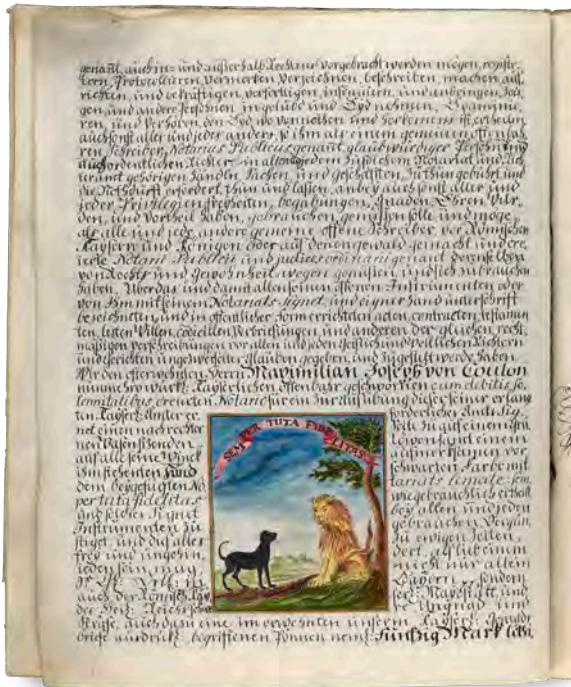 genant, auch in= und außerhalb Rechtens vorgebracht werden mögen, registri=
tern, Protocolliren, vermercken, verzeichnen, beschreiben, machen, auf=
richten, und bekräftigen, verfertigen, insinuiren, und anbringen, Zeü=
gen und andere Persohnen in gelübd und Eyd nehmen, Examini=
ren, und verhören, den Eyd, wo vonnöthen und herkomens ist, ertheilen
auch sonst aller und jeder anders, so ihm als einem gemeinen offenbah=
ren Schreiber, Notarius Publicus genant, glaubwürdiger Persohn und
auch ordentlichen Richter in allen und jedem zu solchem Notariat und Rich
teramt gehörigen händln, Sachen, und geschäfften, zu thun gebührt und
die Nothdurfft erfordert, thun und lassen, anbey auch sonst aller und
jeder Privilegien freyheiten, begabungen, Gnaden, Ehren Wür=
den, und Vortheil haben, gebrauchen, geniessen solle und möge,
als alle und jede andere gemeine offene Schreiber, von Römischen
Kaysern und Königen oder aus deren gewald gemacht und cre,
irete Notarii Publici und judices ordinarii genant derenselben
von Rechts und Gewohnheit wegen geniessen, und sich zu brauchen
haben, Über das und damit allen seinen offenen Instrumenten oder
von Ihm mit seinem Notariats Signet, und eigner hand unterschrifft
bezeichneten, und in offentlicher form errichteten acten, contracten, testamen
ten, letsten Willen, codicillen, Verbrieffungen, und anderen der gleichen recht,
mäßigen verschreibungen vor allen und jeden Geistlich und weltlichen Richtern
und Gerichten ungezweifelter glauben gegeben, und zugestelt werde. Haben
Wir den offterwehnten Herrn Maximilian Joseph von Coulon
nunmehro würkl: Kayserlichen offenbahr geschworenen cum debitis so,
lemnitatibus creirten Notario für ein zur ausübung dieser seiner erlang
ten Kayserl: Amter er, forderliches Amts Sig,
net einen nach rechter Seite zu auf einem grü
nen Wasen sitzenden Löwen samt einem
auf alle seine Winck aufmerksamen vor
ihm stehenten Hund schwarzer Farbe mit
dem beygefügten No tariats Lemate: sem
per tuta fidelitas wie gebräuchlich ertheilt
und solches Signet bey allen und jeden
Instrumenten zu gebrauchen Vergün,
stiget, und dis alles zu ewigen Zeiten,
SEMPER TUTA FIDELITAS
der Heil: Reichs
Straffe, auch dazu eine im erwehnten unserm Kayserl: Gewalds
brieffe ausdrückl: begriffenen Pönnen neml: Fünfzig Marck löthi,